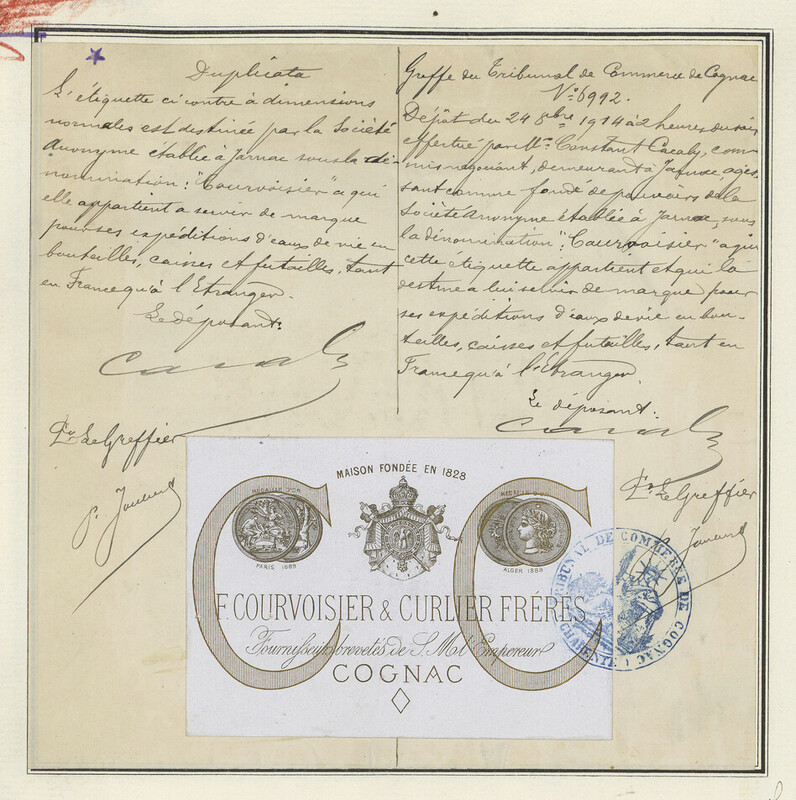 Duplicata
L'étiquette ci contre à dimensions
normales est destinée par la Société
Anonyme établie à Jarnac sous la dé-
nomination: "Courvoisier" a qui
elle appartient a servir de marque
pour ses expéditions d'eaux de vie en
bouteilles, caisses et futailles, tant
en France qu'à l'Etranger.
Le déposant:
Le Greffier
Greffe du Tribunal de Commerce de Cognac
N° 6992.
Dépôt du 24 8bre 1914 à 2 heures du soir
effectué par Mr. Constant Cacaly, com-
mis négociant, demeurant à Jarnac, agis-
sant comme fondé de pouvoirs de la
Société Anonyme établie à Jarnac, sous
la dénomination: "Courvoisier" a qui
cette étiquette appartient et qui la
destine a lui servir de marque pour
ses expéditions d'eaux de vie en bou-
teilles, caisses et futailles, tant en
France qu'à l'Etranger.
Le déposant:
Le Greffier
MAISON FONDÉE EN 1828
MEDAILLE D'OR
PARIS 1889
MEDAILLE D'OR
ALGER 1888
F. COURVOISIER & CURLIER FRÉRES
Fournisseurs brevetés de S. M. l'Empereur
COGNAC
TRIBUNAL DE COMMERCE DE COGNAC
(CHARENTE)